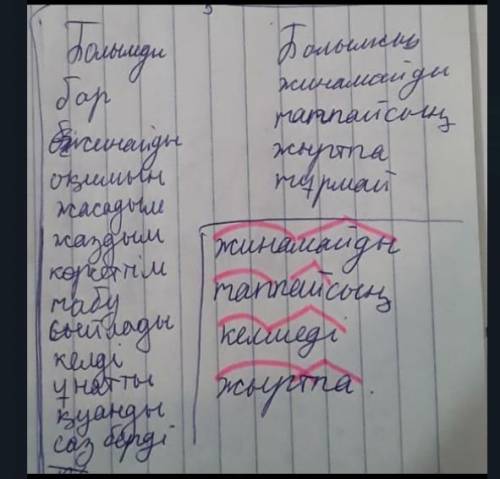 Болымды
бар
жинайды
оқимын
жасадым
жаздым
көрсеттім
табу
сыйлады
келді
ұнатты
қуанды
саз берді
Болымсыз
жинамайды
таппайсың
жыртпа
тұрмай
жинамайды
таппайсың
келмеді
жыртпа.